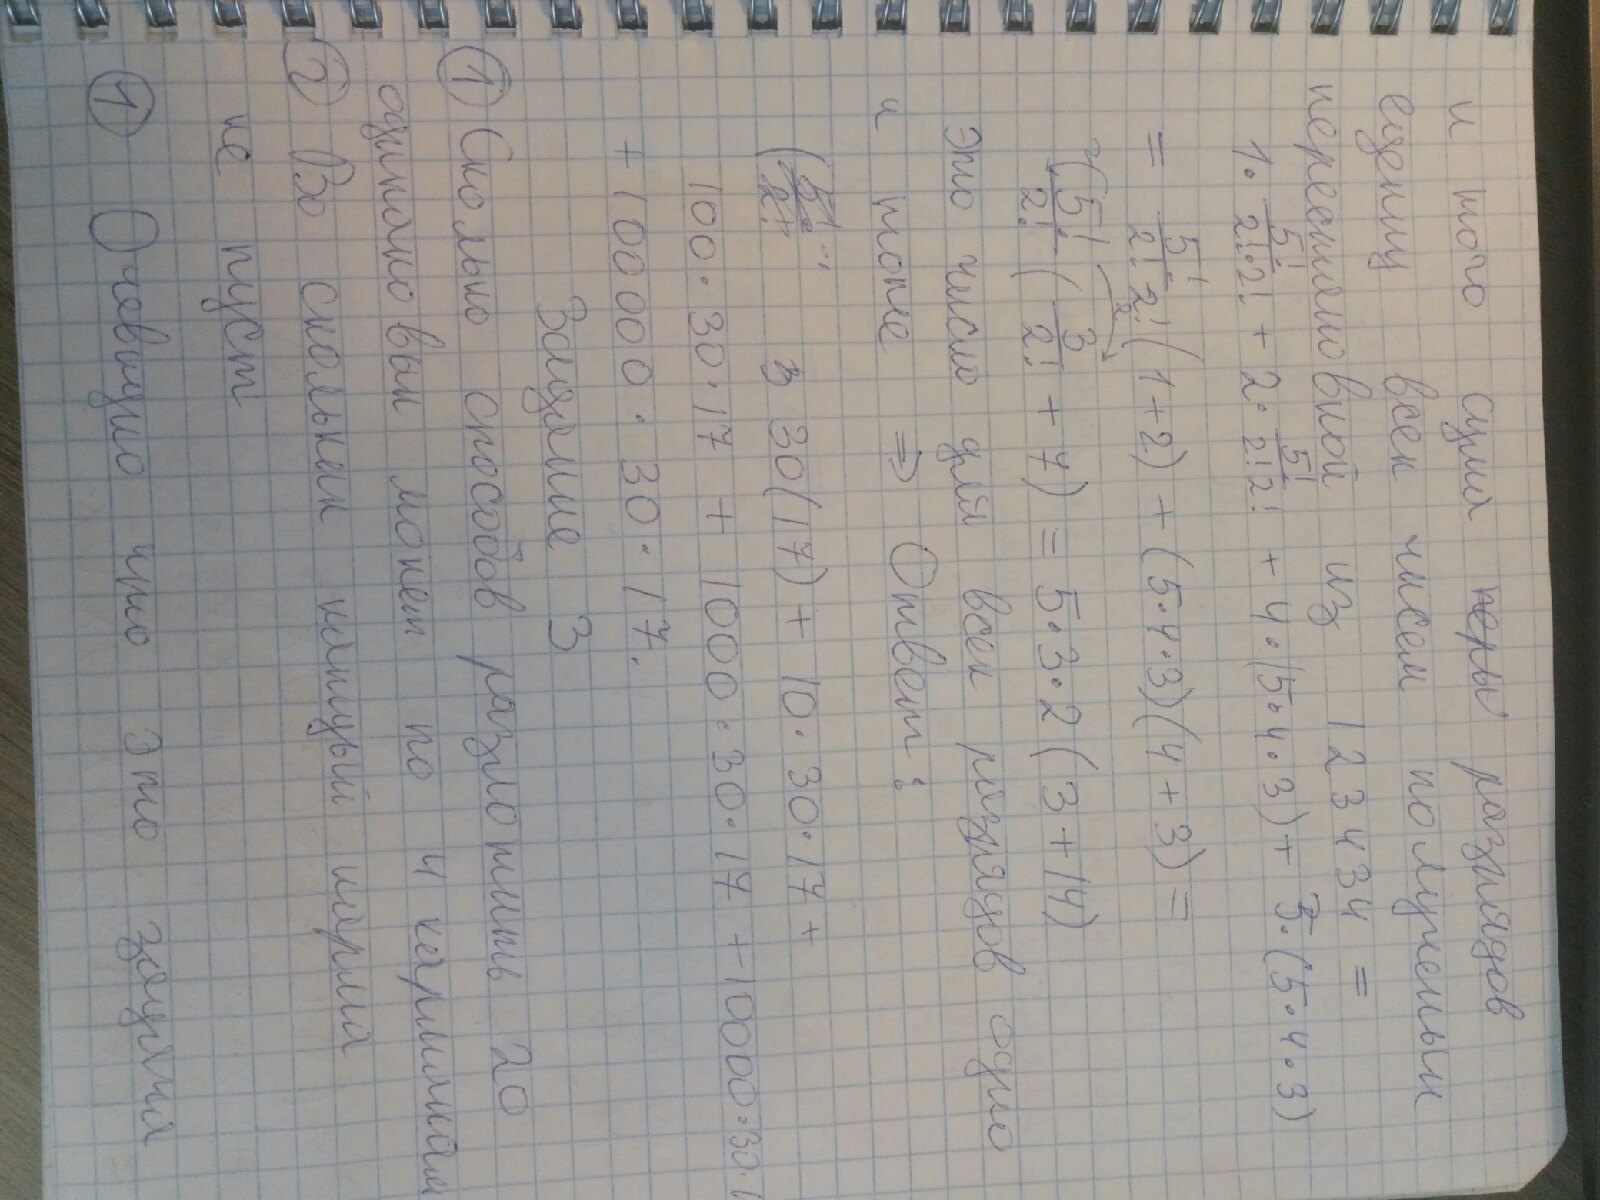 и того сума разрядов
единиц всех чисел полученых
перестановкой из 123434 =
1·5!/2!·2! + 2·5!/2!2! + 4·(5·4·3) + 3·(5·4·3)
= 5!/2!2!(1+2) + (5·4·3)(4+3) =
5!/2!(3/2! + 7) = 5·3·2(3+14)
Это число для всех разрядов одно
и тоже ⇒ Ответ:
30(17) + 10·30·17 +
100·30·17 + 1000·30·17 + 10000·30·1
+ 100000·30·17.
Задание 3
① Сколько способов разложить 20
одинаковых монет по 4 карманам
② Во скольких каждый карман
не пуст
① Очевидно что это задача